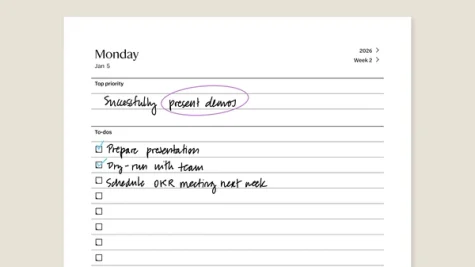 Monday
Jan 5
2026 >
Week 2 >
Top priority
Succesfully present demos
To-dos
Prepare presentation
Dry-run with team
Schedule OKR meeting next week